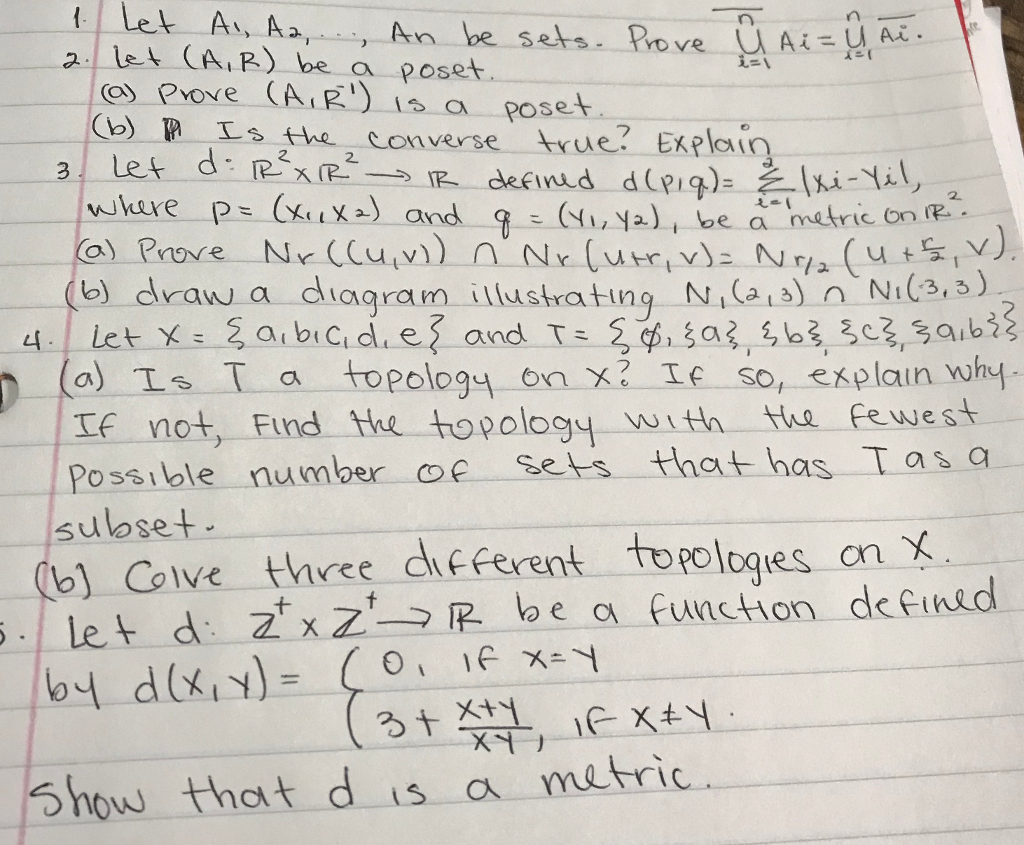 1. Let A₁, A₂, ..., An be sets. Prove \overline{⋃_{i=1}^{n} Ai} = ⋃_{i=1}^{n} \overline{Ai}.
2. let (A,R) be a poset.
(a) Prove (A,R⁻¹) is a poset.
(b) Is the converse true? Explain
3. Let d: ℝ² × ℝ² → ℝ defined d(p,q) = Σ_{i=1}^{2} |xi - yi|,
where p = (x₁, x₂) and q = (y₁, y₂), be a metric on ℝ².
(a) Prove Nr((u,v)) ∩ Nr(u+r, v) = Nr/2 (u + r/2, v).
(b) draw a diagram illustrating N₁(2,3) ∩ N₁(3,3)
4. Let X = {a,b,c,d,e} and T = {∅, {a}, {b}, {c}, {a,b}}
(a) Is T a topology on X? If so, explain why.
If not, Find the topology with the fewest
possible number of sets that has T as a
subset.
(b) Give three different topologies on X.
5. Let d: Z⁺ × Z⁺ → ℝ be a function defined
by d(x,y) = { 0, if x=y
3 + \frac{x+y}{xy}, if x≠y.
Show that d is a metric.